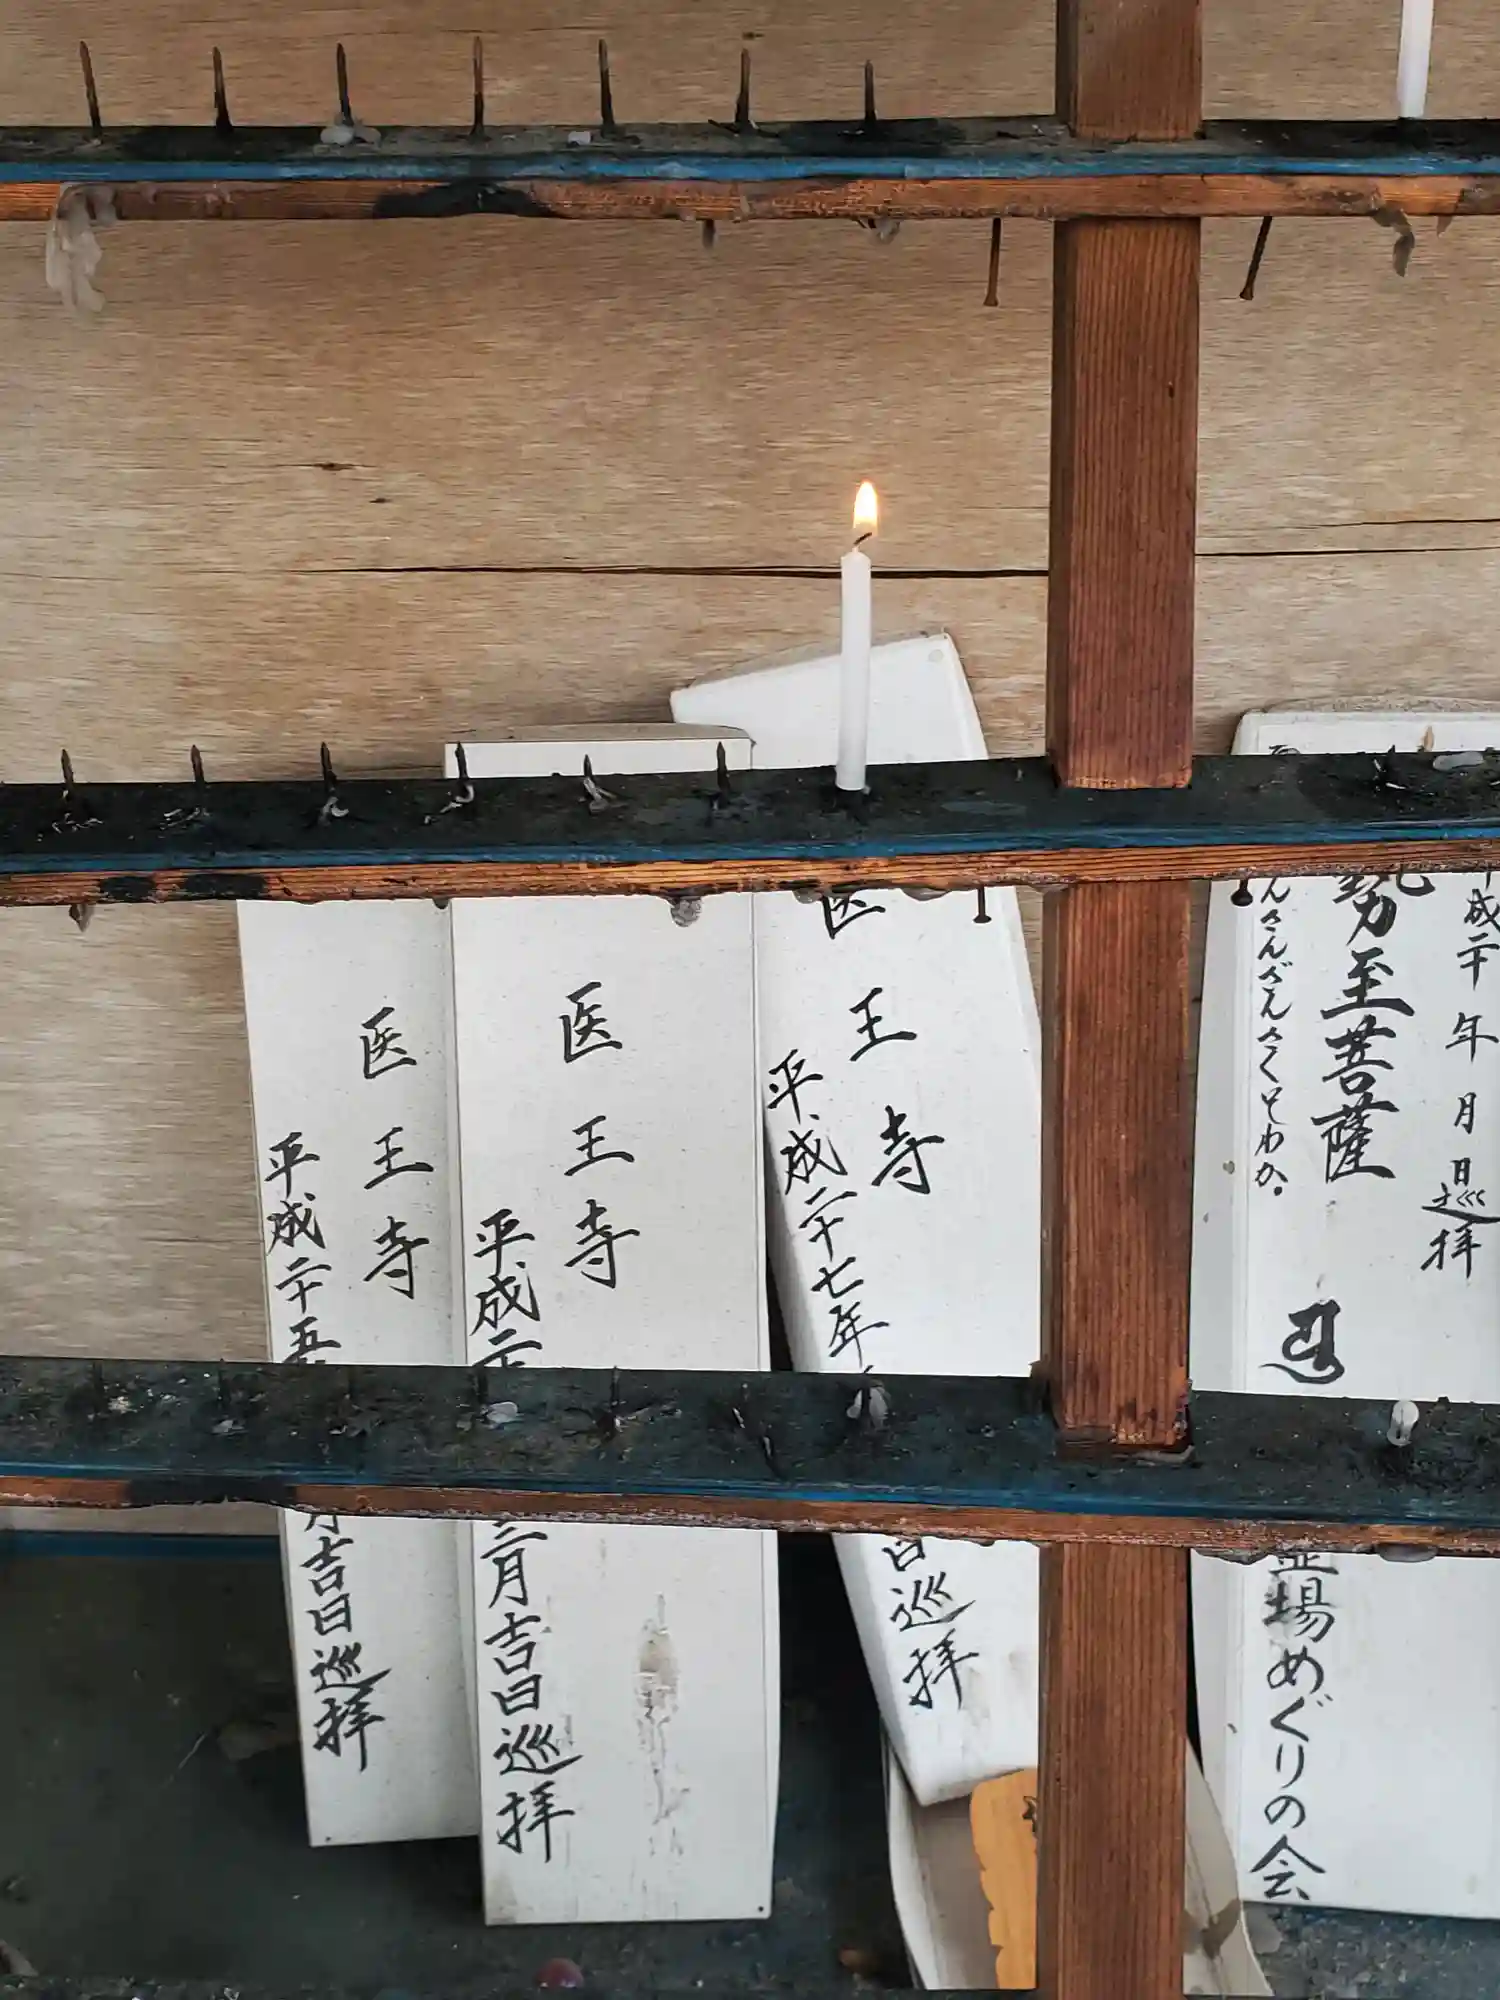 平成二十年 月 日巡拝
勢至菩薩
んさんざんさくそわか。
霊場めぐりの会
医王寺
平成二十七年
日巡拝
医王寺
平成二十
三月吉日巡拝
医王寺
平成二十五
月吉日巡拝